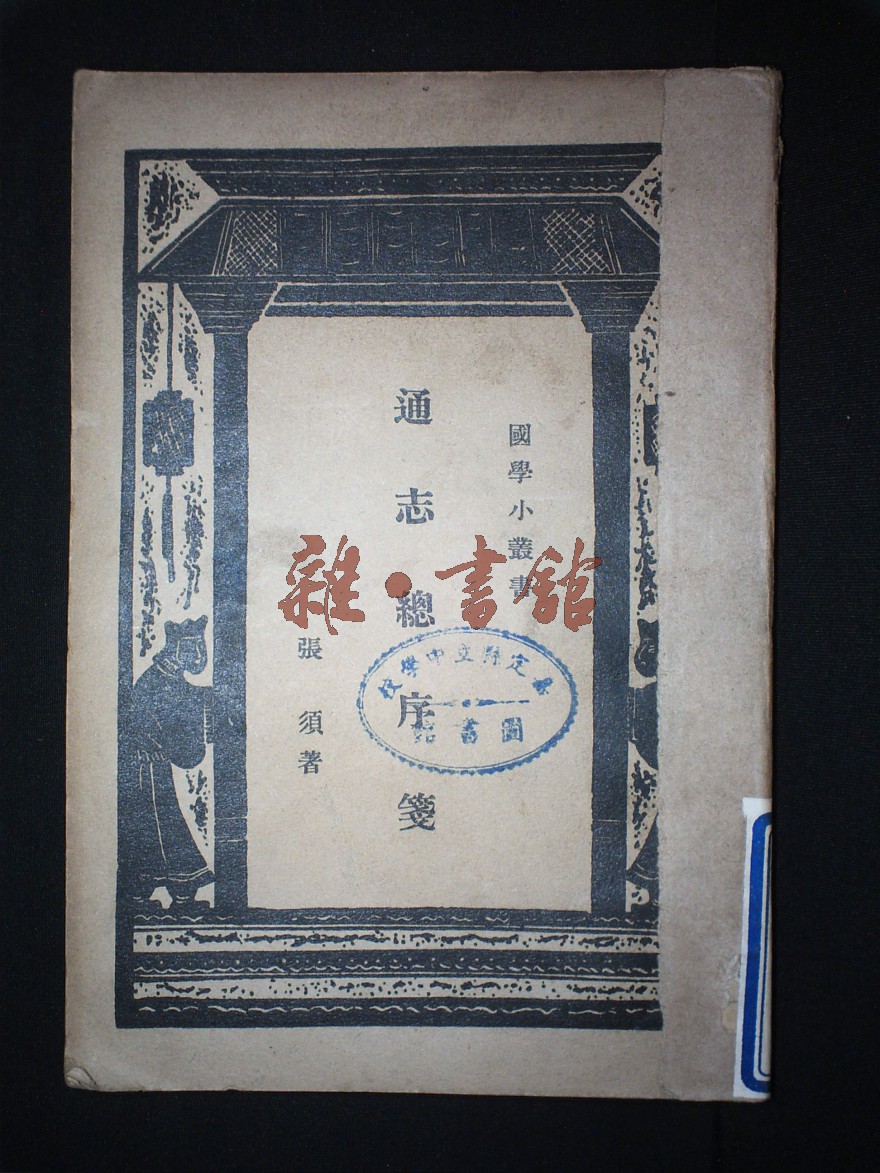 國學小叢書
通志總序箋
張須著
雜·書館
嘉定縣立中學校
圖書館